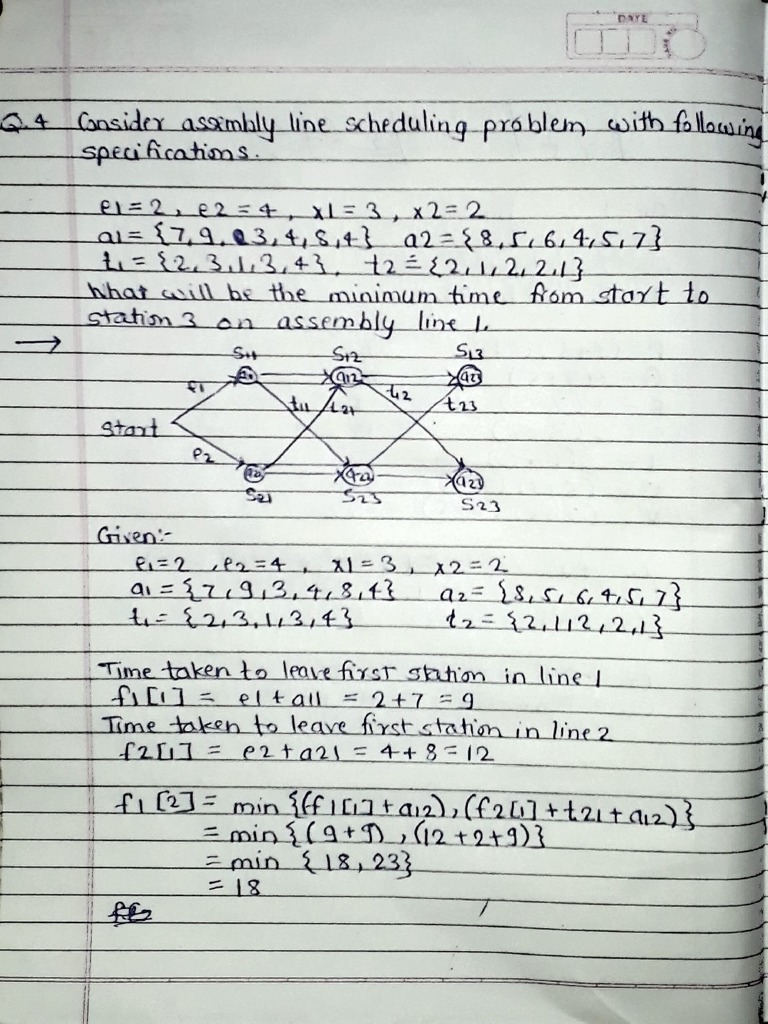 DATE
Q.4 Consider assembly line scheduling problem with following
specifications.
e1=2, e2=4, x1=3, x2=2
a1={7,9,3,4,8,4} a2={8,5,6,4,5,7}
t1={2,3,1,3,4}, t2={2,1,2,2,1}
What will be the minimum time from start to
station 3 on assembly line 1.
→
S11 S12 S13
a11 a12 a23
e1 t11 t21 t12 t23
start
e2
a21 a22 a23
S21 S23 S23
Given:-
e1=2, e2=4, x1=3, x2=2
a1={7,9,3,4,8,4} a2={8,5,6,4,5,7}
t1={2,3,1,3,4} t2={2,1,2,2,1}
Time taken to leave first station in line 1
f1[1] = e1+a11 = 2+7 = 9
Time taken to leave first station in line 2
f2[1] = e2+a21 = 4+8=12
f1[2] = min{(f1[1]+a12),(f2[1]+t21+a12)}
= min{(9+9),(12+2+9)}
= min {18,23}
= 18